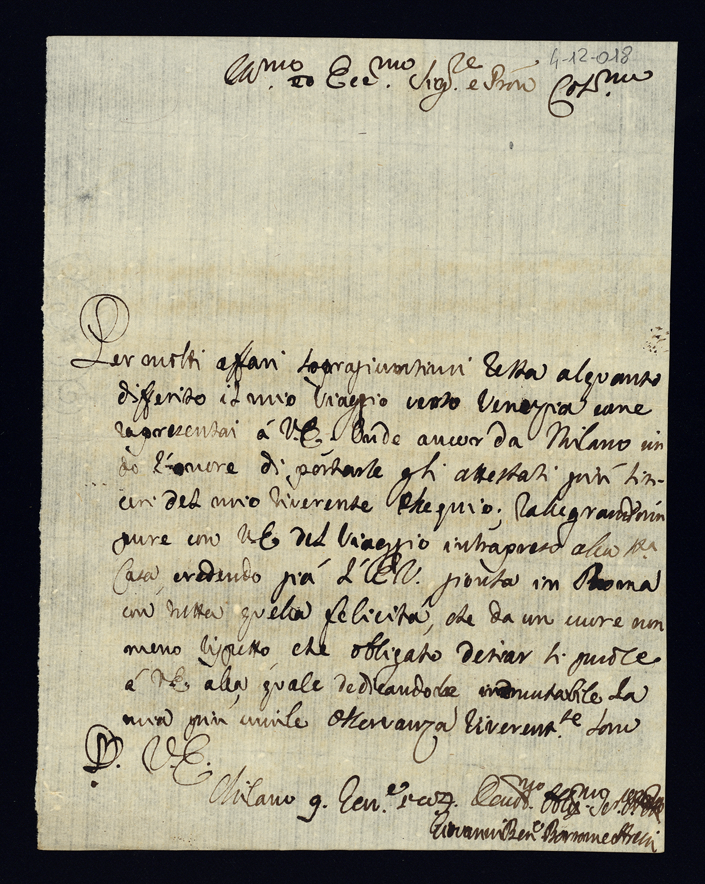 4-12-018
Ecc.mo Sig.re e Pron Col.mo
Per molti affari sopragiuntimi resta alquanto
differito il mio Viaggio verso Venezia come
rapresentai á V.E. Onde ancor da Milano
l'onore di portarle gli attestati piú sin-
ceri del mio riverente Ossequio; rallegrandomi
pure con V.E. del Viaggio intrapreso alla S.ta
Casa, credendo giá L'E.V. gionta in Roma
con tutta quella felicitá, che da un cuore non
meno rispetto che obligato desiar si puole
á V.E. alla quale dedicandole immutabile la
mia piú umile Osservanza riverent.te sono
D. V.E.
Milano 9. Gen.o
Giovanni Ben.o Borromeo Arese